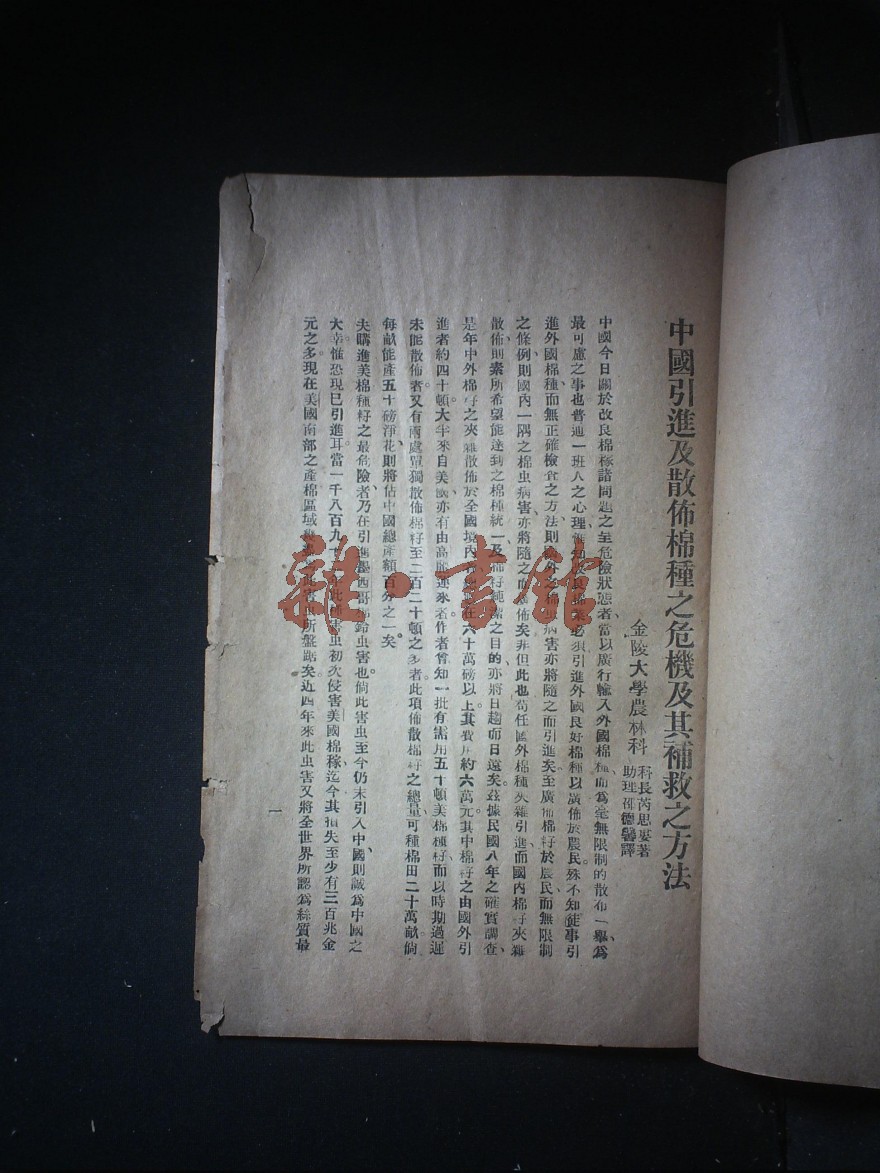 中國引進及散佈棉種之危機及其補救之方法
金陵大學農林科
科長芮思婁著
助理邵德馨譯
中國今日關於改良棉稼諸問題之至危險狀態者、當以廣行輸入外國棉種、而爲毫無限制的散布一舉、爲
最可慮之事也普通一班人之心理、僅知改良棉業必須引進外國良好棉種以廣佈於農民。殊不知徒事引
進外國棉種、而無正確檢查之方法則國外之棉虫病害亦將隨之而引進矣至廣佈棉籽於農民而無限制
之條例、則國內一隅之棉虫病害、亦將隨之而廣佈矣非但此也苟任國外棉種夾雜引進、而國內棉籽夾雜
散佈、則素所希望能達到之棉種統一及棉籽純潔之目的、亦將日趨而日遠矣。茲據民國八年之確實調查、
是年中外棉籽之夾雜散佈於全國境內者總在六十萬磅以上其費用約六萬元。其中棉籽之由國外引
進者約四十頓、大半來自美國、亦有由高麗運來者。作者曾知一批有需用五十頓美棉種籽而以時期過遲
未能散佈者。又有兩處單獨散佈棉籽至二百二十頓之多者此項佈散棉籽之總量、可種棉田二十萬畝倘
每畝能產五十磅淨花、則將佔中國總產額百分之一矣。
夫購進美棉種籽之最危險者、乃在引進墨西哥棉鈴虫害也。倘此害虫至今仍未引入中國、則誠爲中國之
大幸、惟恐現已引進耳。當一千八百九十 年此種害虫初次侵害美國棉稼、迄今其損失至少有三百兆金
元之多。現在美國南部之產棉區域 害虫所盤踞矣。近四年來此虫害又將全世界所認爲絲質最
一
雜·書館